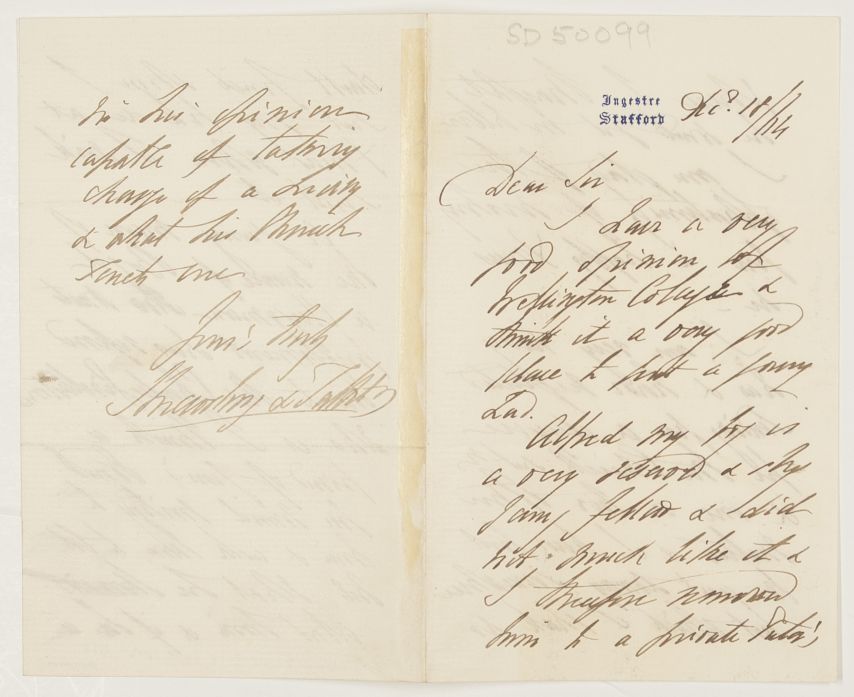 SD 50099
Ingestre
Stafford
Dec: 18/74
Dear Sir
I have a very
good opinion of
Wellington College &
think it a very good
place to put a young
Lad.
Alfred my boy is
a very reserved & shy
young fellow & did
not much like it &
I therefore removed
him to a private Tutor's
in his opinion
capable of taking
charge of a living
& what his Church
Yours truly
Shrewsbury & Talbot